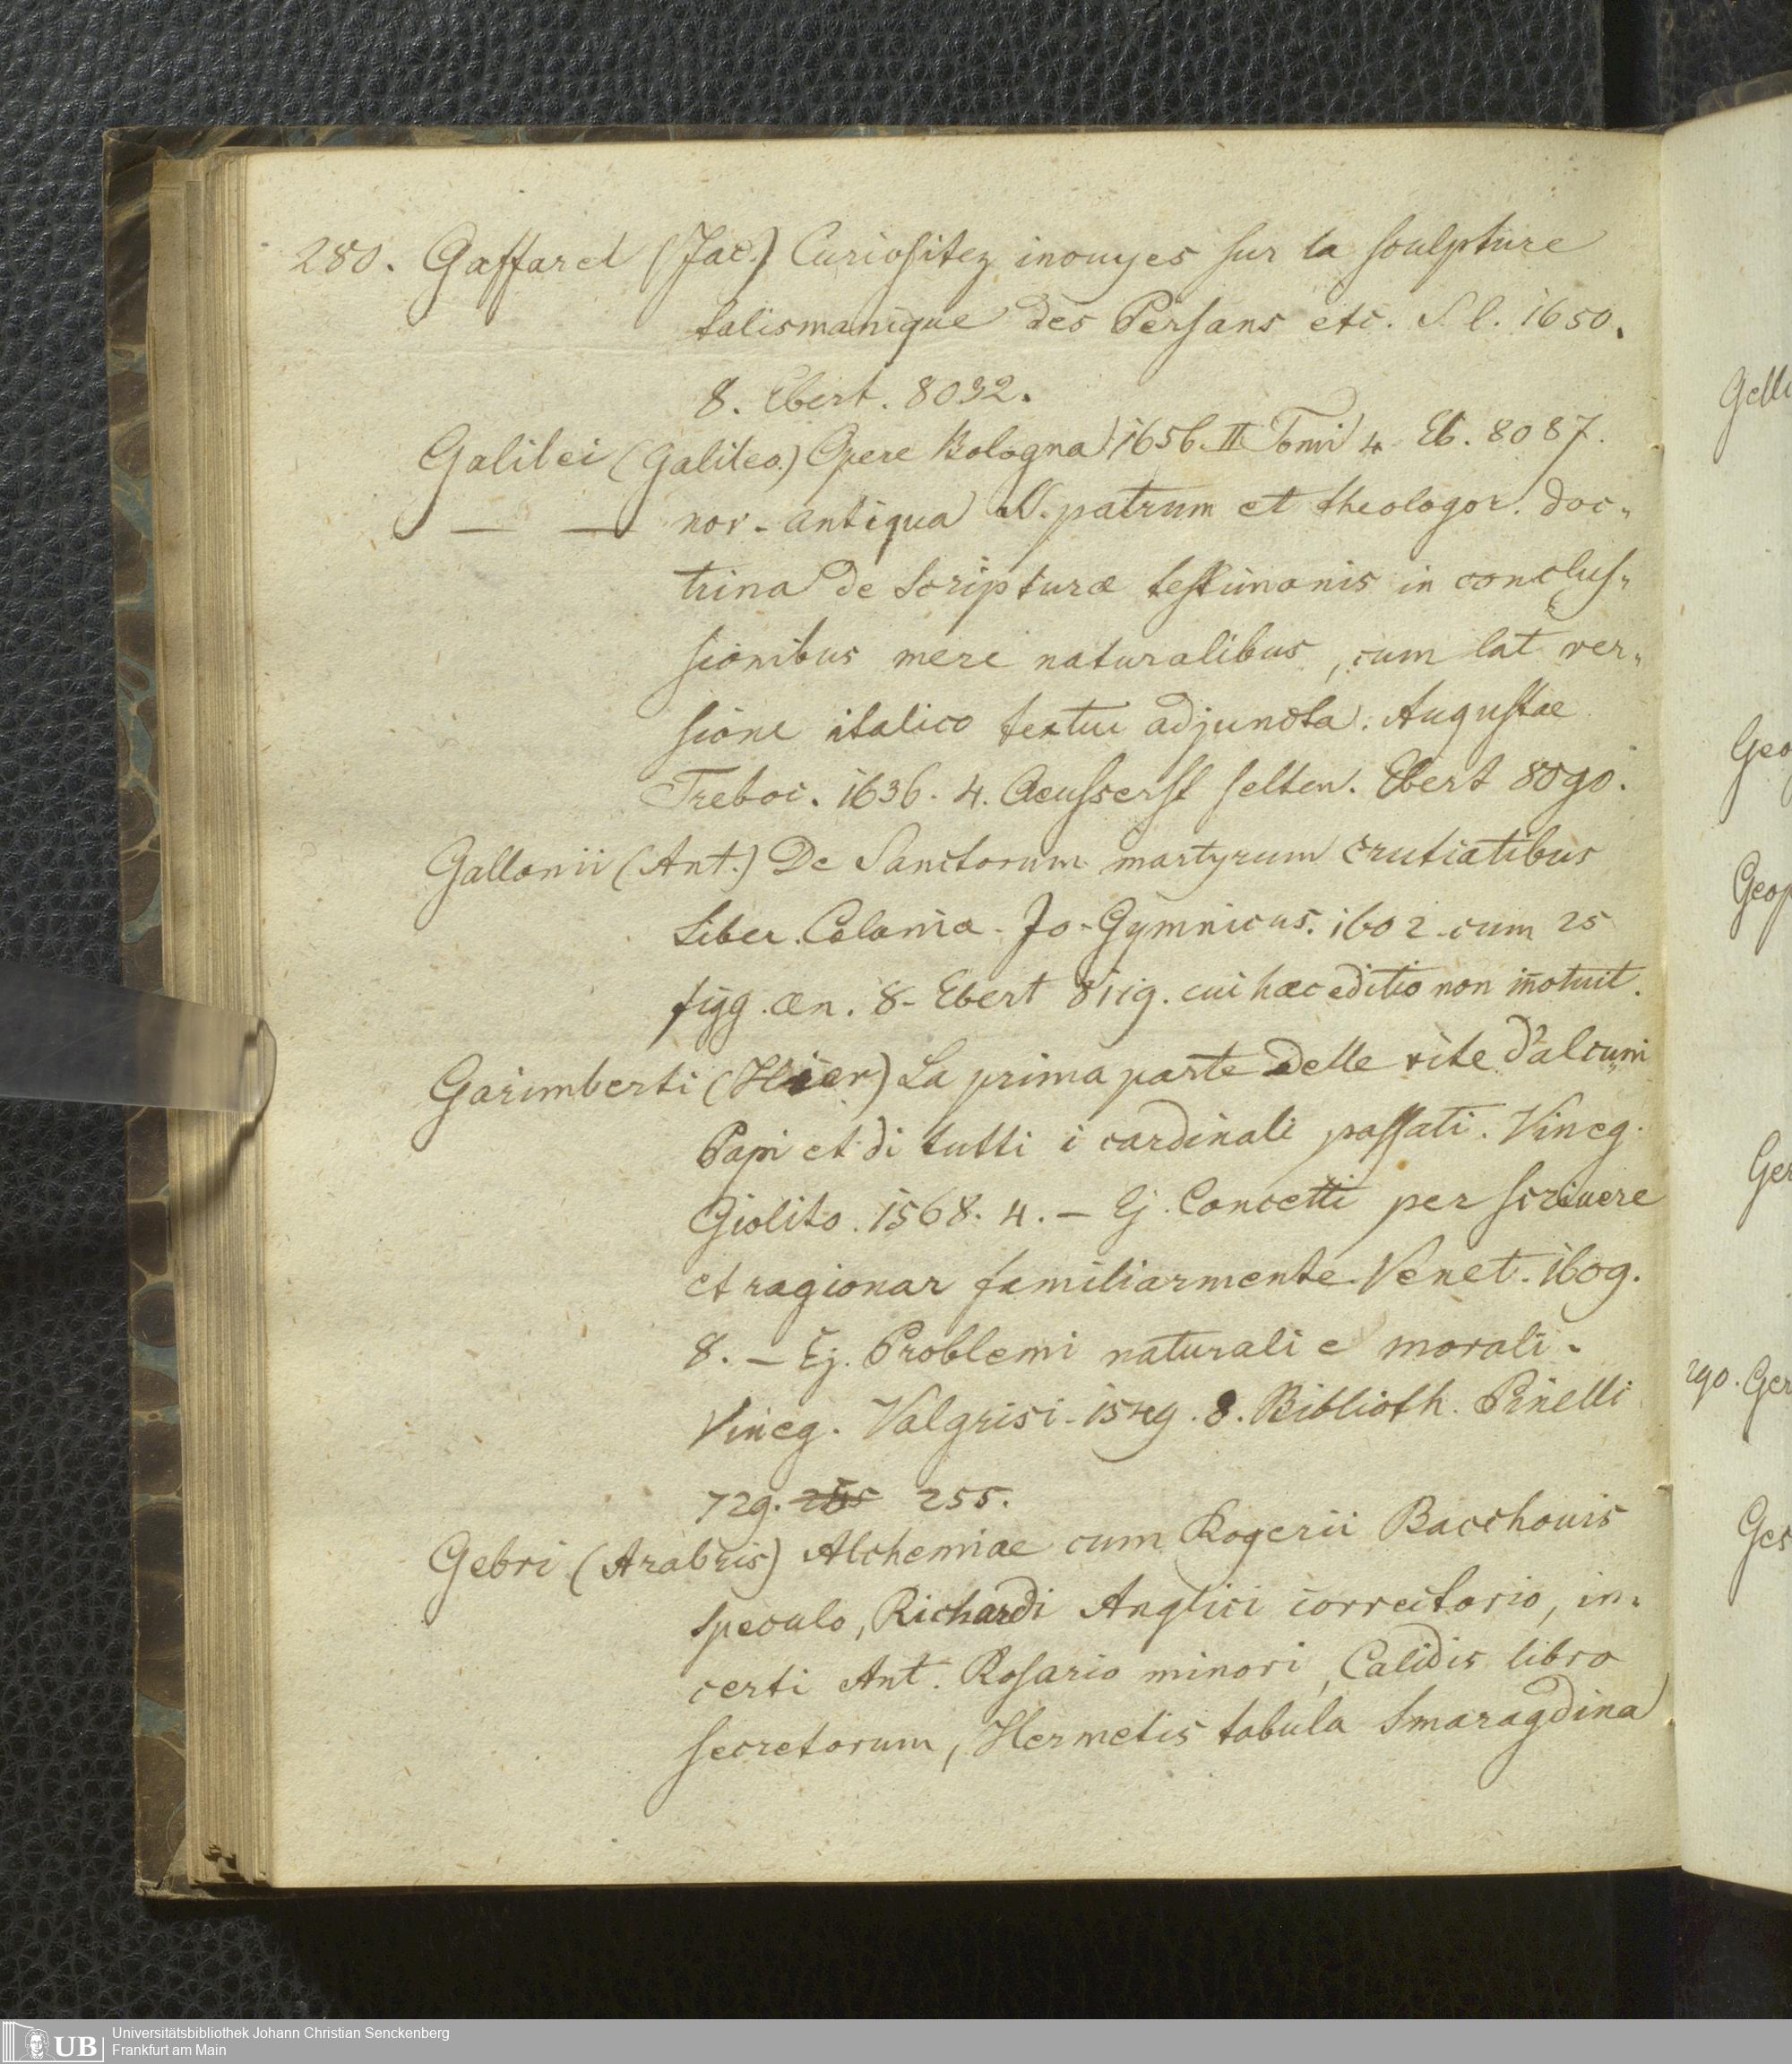 280. Gaffarel (Jac.) Curiositez inouyes sur la sculpture
talismanique des Persans etc. S. l. 1650.
8. Ebert. 8032.
Galilei (Galileo.) Opere Bologna 1656. II Tomi 4. Eb. 8087.
— — nov-antiqua S. patrum et theologor. doc„
trina de Scripturæ testimonis in conclus„
sionibus mere naturalibus, cum lat ver„
sione italico textui adjuncta. Augustae
Treboc. 1636. 4. Aeusserst selten. Ebert 8090.
Gallonii (Ant.) De Sanctorum martyrum crutiatibus
Liber. Colonia. Jo. Gymnicus. 1602. cum 25
figg. æn. 8. Ebert 8119. cui hac editio non iñotuit.
Garimberti (Hier) La prima parte delle vite d'alcuni
Papi et di tutti i cardinali passati. Vineg.
Giolito. 1568. 4. — Ej. Concetti per scriuere
et ragionar familiarmente. Venet. 1609.
8. — Ej. Problemi naturali e morali.
Vineg. Valgrisi. 1549. 8. Biblioth. Pinelli
729. 255 255.
Gebri (Arabris) Alchemiae cum Rogerii Bacchouis
speculo, Richardi Anglici correctorio, in„
certi Ant. Rosario minori, Calidis libro
secretorum, Hermetis tabula Smaragdina
Gelli
Geo
Geop
Ger
290. Ger
Ges
UB
Universitätsbibliothek Johann Christian Senckenberg
Frankfurt am Main